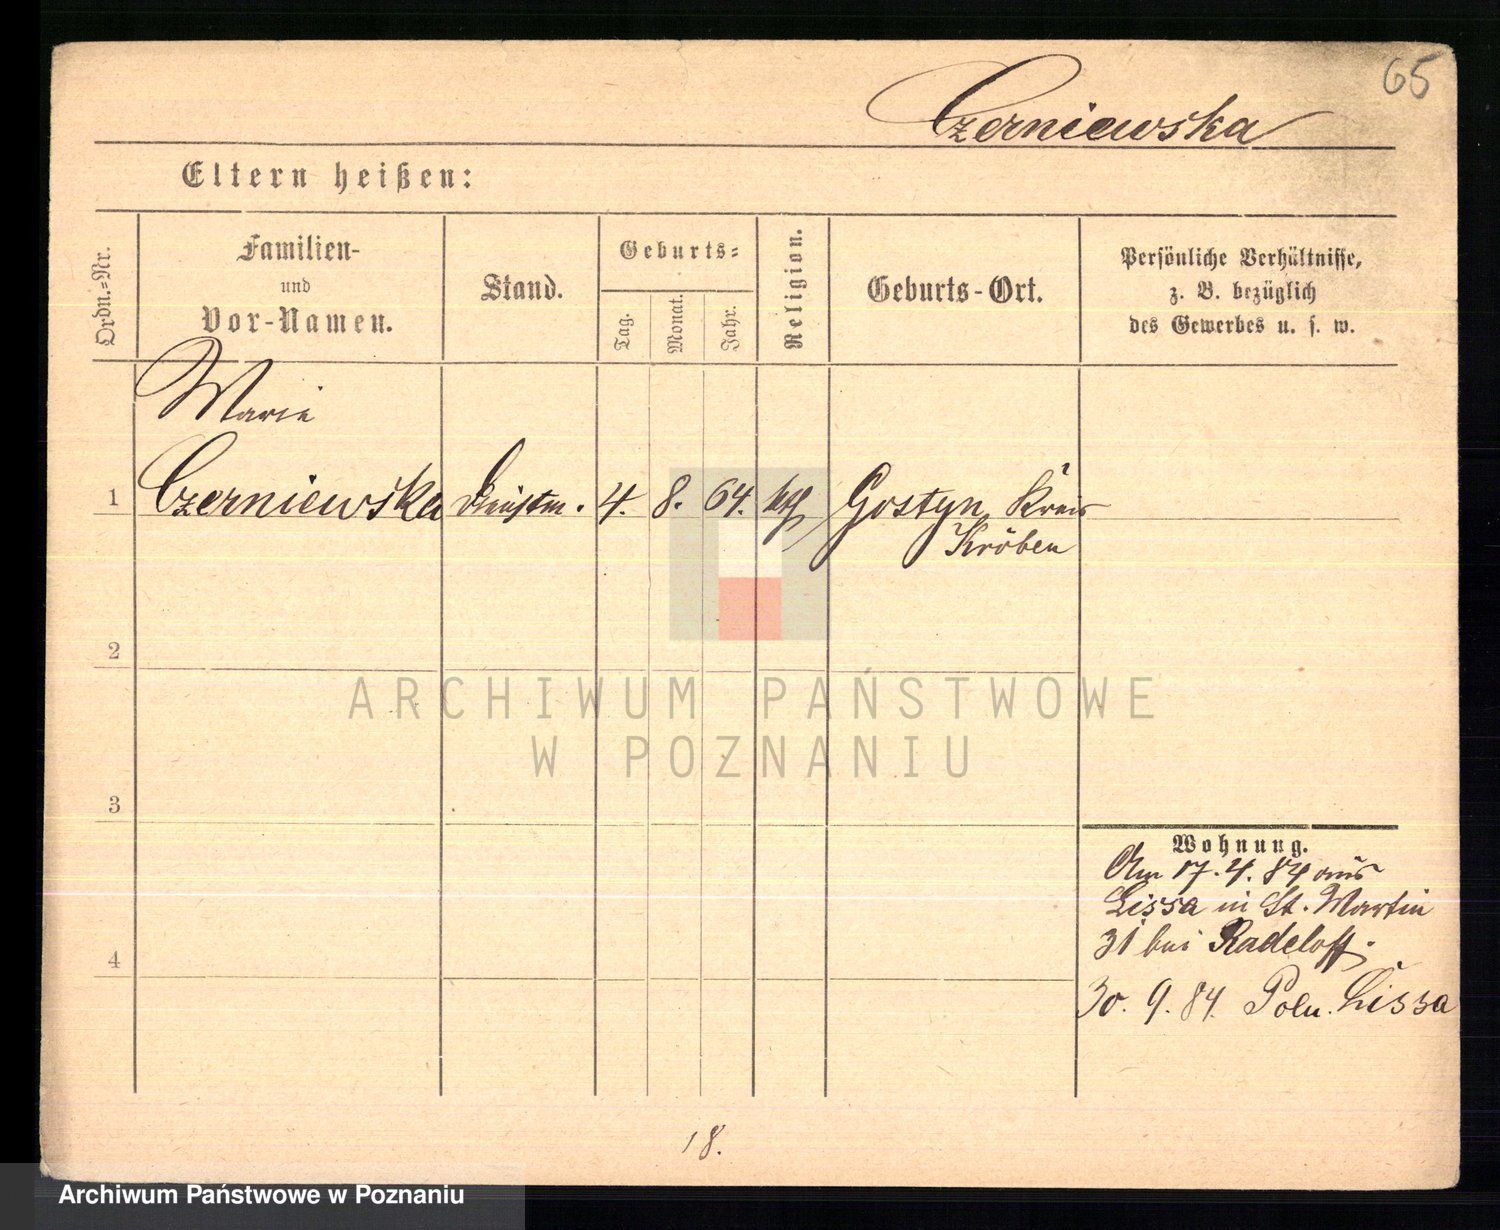 65
Czerniewska
Eltern heißen:
Ordn.-Nr.
Familien-
und
Vor-Namen.
Stand.
Geburts-
Tag.
Monat.
Jahr.
Religion.
Geburts-Ort.
Persönliche Verhältnisse,
z. B. bezüglich
des Gewerbes u. s. w.
Marie
1 Czerniewska Dienstm. 4. 8. 64. kth Gostyn Kreis
Kröben
2
3
4
Wohnung.
Am 17. 4. 84 aus
Lissa in St. Martin
31 bei Radeloff.
30. 9. 84. Poln. Lissa
18.
ARCHIWUM PAŃSTWOWE
W POZNANIU
Archiwum Państwowe w Poznaniu